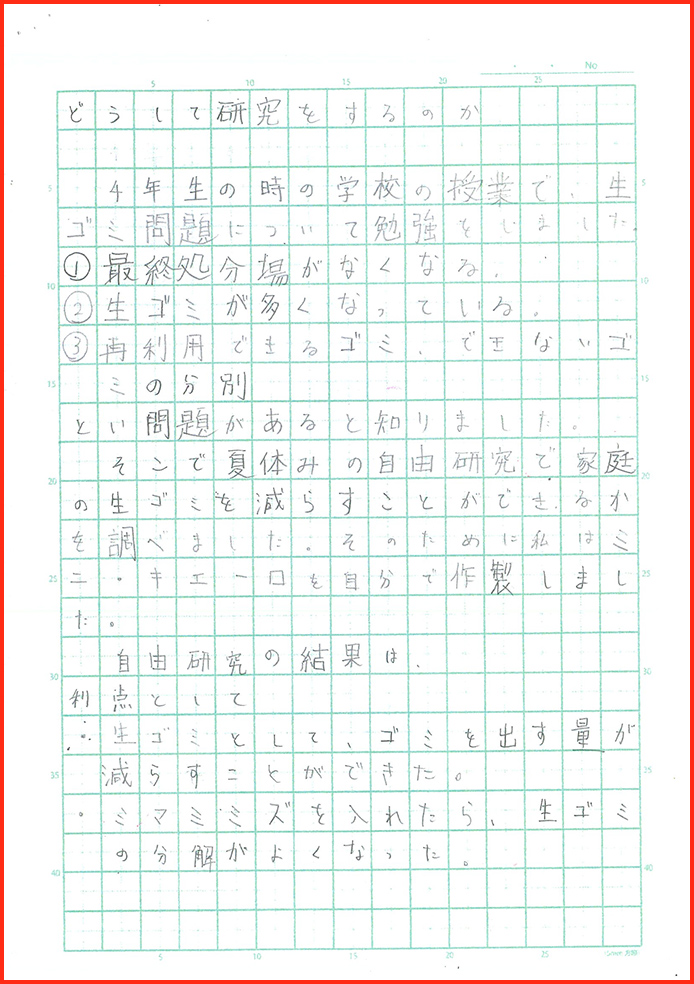 No
どうして研究をするのか
4年生の時の学校の授業で、生
ゴミ問題について勉強をしました。
①最終処分場がなくなる。
②生ゴミが多くなっている。
③再利用できるゴミ、できないゴ
ミの分別
とい問題があると知りました。
そこで夏休みの自由研究で家庭
の生ゴミを減らすことができるか
を調べました。そのために私はミ
ニ・キエーロを自分で作製しまし
た。
自由研究の結果は、
利点として
・生ゴミとして、ゴミを出す量が
減らすことができた。
・ミマミミズを入れたら、生ゴミ
の分解がよくなった。